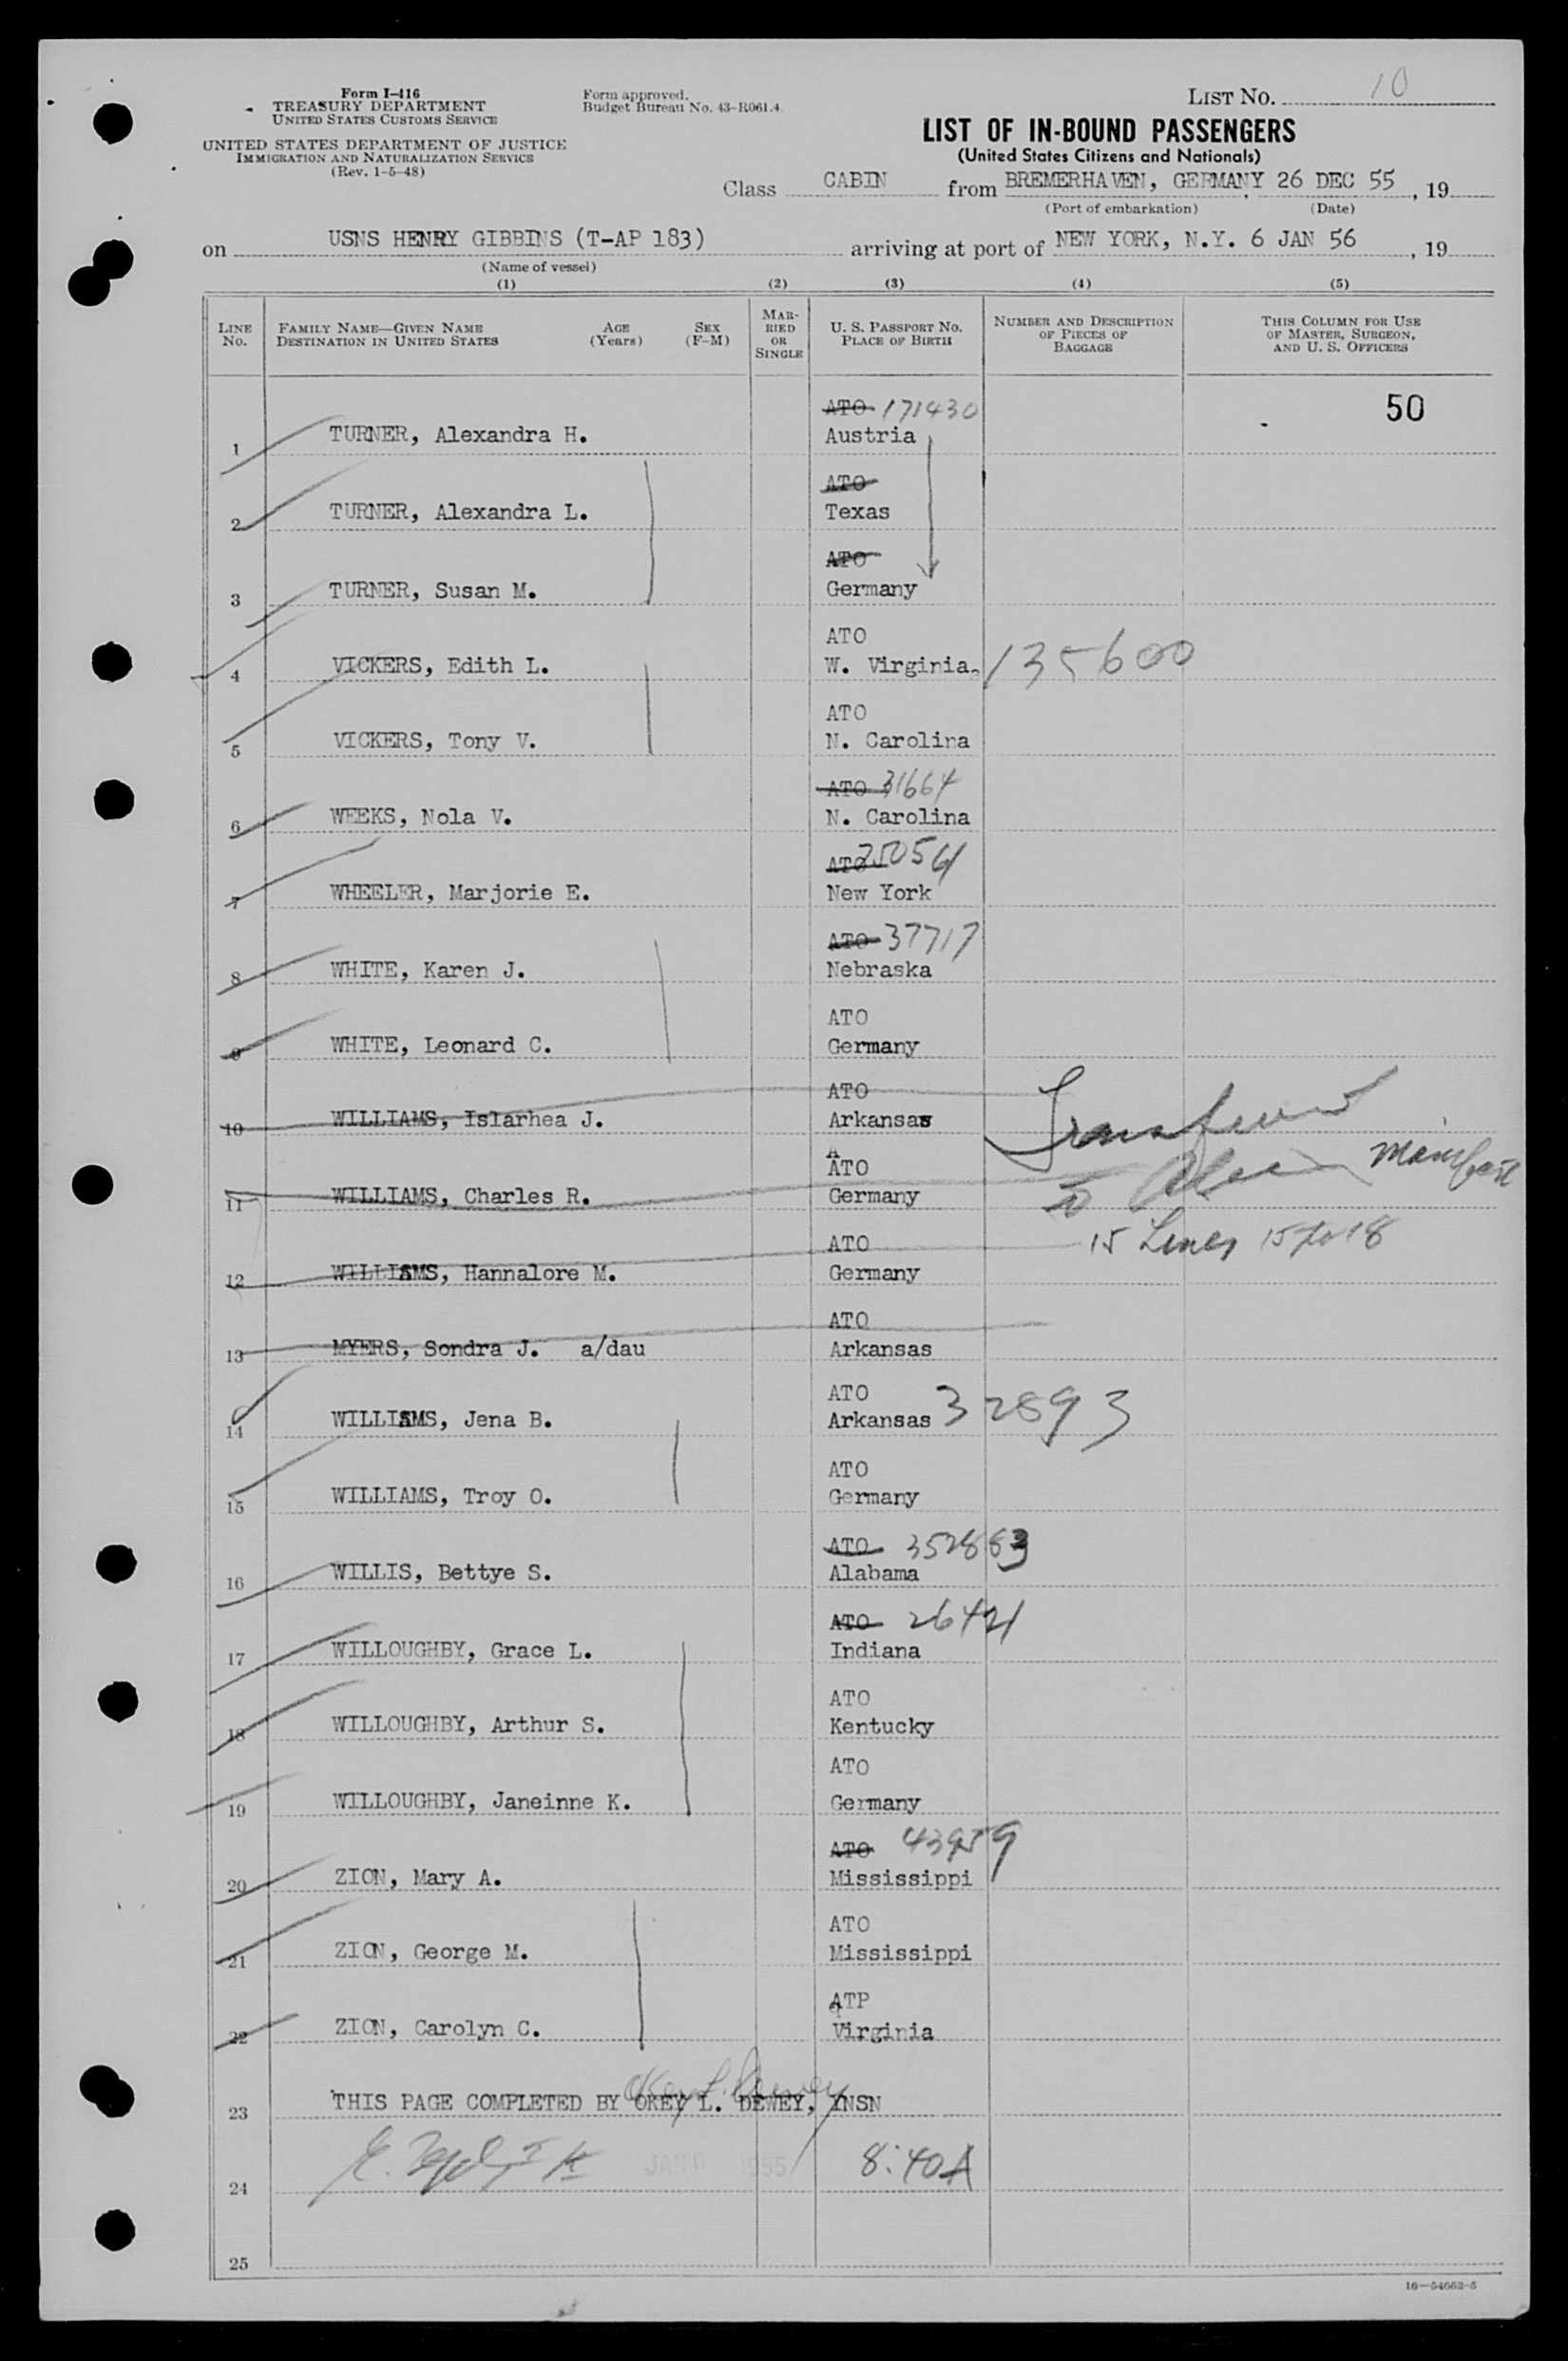 Form I-416
TREASURY DEPARTMENT
UNITED STATES CUSTOMS SERVICE
UNITED STATES DEPARTMENT OF JUSTICE
IMMIGRATION AND NATURALIZATION SERVICE
(Rev. 1-5-48)
Form approved.
Budget Bureau No. 43-R061.4.
LIST NO. 10
LIST OF IN-BOUND PASSENGERS
(United States Citizens and Nationals)
Class CABIN from BREMERHAVEN, GERMANY, 26 DEC 55, 19
(Port of embarkation) (Date)
on USNS HENRY GIBBINS (T-AP 183) arriving at port of NEW YORK, N.Y. 6 JAN 56, 19
(Name of vessel)
(1) (2) (3) (4) (5)
LINE NO.
FAMILY NAME—GIVEN NAME
DESTINATION IN UNITED STATES
AGE (Years)
SEX (F-M)
MARRIED OR SINGLE
U. S. PASSPORT NO.
PLACE OF BIRTH
NUMBER AND DESCRIPTION OF PIECES OF BAGGAGE
THIS COLUMN FOR USE OF MASTER, SURGEON, AND U. S. OFFICERS
ATO 171430 50
1 TURNER, Alexandra H. Austria
ATO
2 TURNER, Alexandra L. Texas
ATO
3 TURNER, Susan M. Germany
ATO
4 VICKERS, Edith L. W. Virginia 135600
ATO
5 VICKERS, Tony V. N. Carolina
ATO 31664
6 WEEKS, Nola V. N. Carolina
ATO
7 WHEELER, Marjorie E. New York
ATO 37717
8 WHITE, Karen J. Nebraska
ATO
9 WHITE, Leonard C. Germany
ATO
10 WILLIAMS, Islarhea J. Arkansas
ATO manifest
11 WILLIAMS, Charles R. Germany to
ATO 15 Lines 15 to 18
12 WILLIAMS, Hannalore M. Germany
ATO
13 MYERS, Sondra J. a/dau Arkansas
ATO
14 WILLIAMS, Jena B. Arkansas 32893
ATO
15 WILLIAMS, Troy O. Germany
ATO
16 WILLIS, Bettye S. Alabama
ATO
17 WILLOUGHBY, Grace L. Indiana
ATO
18 WILLOUGHBY, Arthur S. Kentucky
ATO
19 WILLOUGHBY, Janeinne K. Germany
ATO 43959
20 ZION, Mary A. Mississippi
ATO
21 ZION, George M. Mississippi
ATP
22 ZION, Carolyn C. Virginia
23 THIS PAGE COMPLETED BY OKEY L. DEWEY, YNSN
24 8:40A
25
16—54662-5